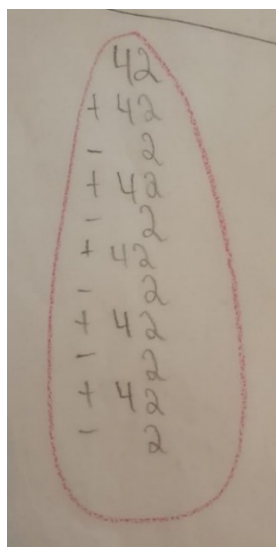 42
+ 42
- 2
+ 42
- 2
+ 42
- 2
+ 42
- 2
+ 42
- 2